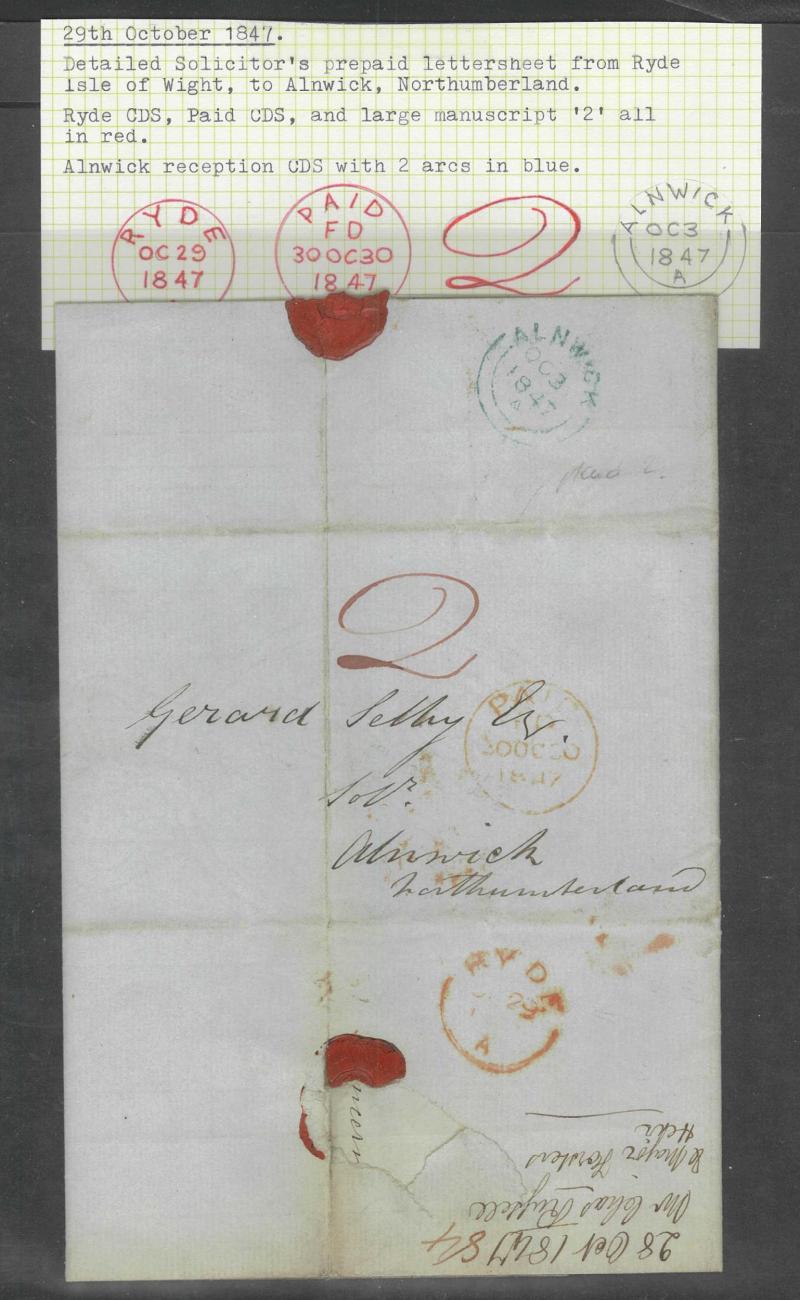 29th October 1847.
Detailed Solicitor's prepaid lettersheet from Ryde
isle of Wight, to Alnwick, Northumberland.
Ryde CDS, Paid CDS, and large manuscript '2' all
in red.
Alnwick reception CDS with 2 arcs in blue.
RYDE
OC 29
1847
PAID
FD
30 OC 30
1847
2
ALNWICK
OC 3
1847
A
ALNWICK
OC 3
1847
A
paid 2.
2
Gerard Selby Esq.
PAID
30 OC 30
1847
Solr.
Alnwick
Northumberland
RYDE
29
A
28 Oct 1847 84
Mr Chas
& Major Forsters